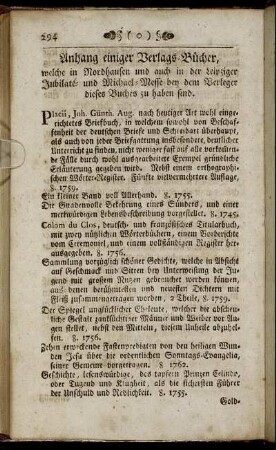 294
Anhang einiger Verlags-Bücher,
welche in Nordhausen und auch in der Leipziger
Jubilate- und Michael-Messe bey dem Verleger
dieses Buches zu haben sind.
Joh. Günth. Aug. nach heutiger Art wohl einge-
richtetes Briefbuch, in welchem sowohl von Beschaf-
fenheit der deutschen Briefe und Schreibart überhaupt,
als auch von jeder Briefgattung insbesondere, deutlicher
Unterricht zu finden, nicht weniger fast auf alle vorkom-
mende Fälle durch wohl ausgearbeitete Exempel gründliche
Erläuterung gegeben wird. Nebst einem orthographi-
schen Wörter-Register. Fünfte vielvermehrtere Auflage,
8. 1759.
Ein kleiner Band voll Allerhand. 8. 1755.
Die Gnadenvolle Bekehrung eines Sünders, und einer
merkwürdigen Lebensbeschreibung vorgestellet. 8. 1745.
Colom du Clos, deutsch- und französisches Titularbuch,
mit zwey nützlichen Wörterbüchern, einem Vorberichte
vom Ceremoniel, und einem vollständigen Register her-
ausgegeben, 8. 1756.
Sammlung vorzüglich schöner Gedichte, welche in Absicht
auf Geschmack und Sitten bey Unterweisung der Ju-
gend mit grossem Nutzen gebrauchet werden können,
aus denen berühmtesten und neuesten Dichtern mit
Fleiß zusammengetragen worden, 2 Theile, 8. 1759.
Der Spiegel unglücklicher Eheleute, welcher die abscheu-
liche Gestalt zanksüchtiger Männer und Weiber vor Au-
gen stellet, nebst den Mitteln, diesem Unheile abzuhel-
fen. 8. 1756.
Zehen erweckende Fastenpredigten von den heiligen Wun-
den Jesu über die ordentlichen Sonntags-Evangelia,
seiner Gemeine vorgetragen. 8. 1762.
Geschichte, lesenswürdige, des tapfern Prinzen Celindo,
oder Tugend und Klugheit, als die sichersten Führer
der Unschuld und Redlichkeit. 8. 1755.
Gold-